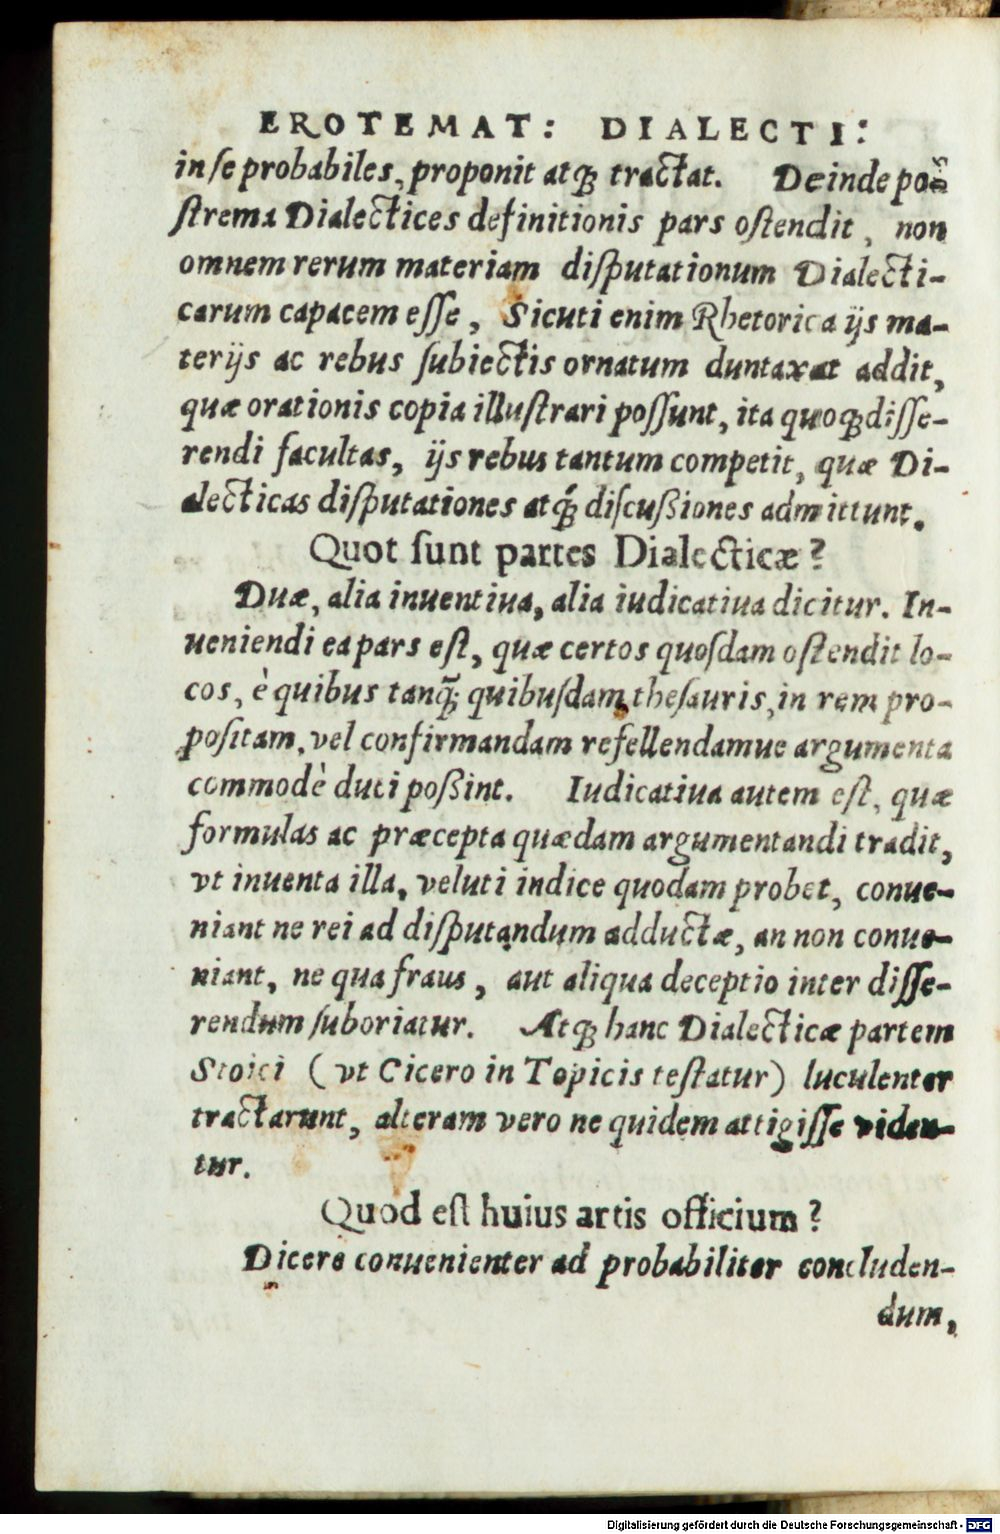 EROTEMAT: DIALECTI:
in se probabiles, proponit atq; tractat. Deinde po-
ſtrema Dialectices definitionis pars oſtendit, non
omnem rerum materiam diſputationum Dialecti-
carum capacem eſſe, Sicuti enim Rhetorica ijs ma-
terijs ac rebus ſubiectis ornatum duntaxat addit,
quæ orationis copia illuſtrari poſſunt, ita quoq; diſſe-
rendi facultas, ijs rebus tantum competit, quæ Di-
alecticas diſputationes atq́; diſcußiones admittunt.
Quot ſunt partes Dialecticæ?
Duæ, alia inuentiua, alia iudicatiua dicitur. In-
ueniendi ea pars eſt, quæ certos quoſdam oſtendit lo-
cos, è quibus tanq̃; quibuſdam theſauris, in rem pro-
poſitam, vel confirmandam refellendamue argumenta
commodè duci poßint. Iudicatiua autem eſt, quæ
formulas ac præcepta quædam argumentandi tradit,
vt inuenta illa, veluti indice quodam probet, conue-
niant ne rei ad diſputandum adductæ, an non conue-
niant, ne qua fraus, aut aliqua deceptio inter diſſe-
rendum ſuboriatur. Atq; hanc Dialecticæ partem
Stoici (vt Cicero in Topicis teſtatur) luculenter
tractarunt, alteram vero ne quidem attigiſſe viden-
tur.
Quod eſt huius artis officium?
Dicere conuenienter ad probabiliter concluden-
dum,
Digitalisierung gefördert durch die Deutsche Forschungsgemeinschaft - DFG